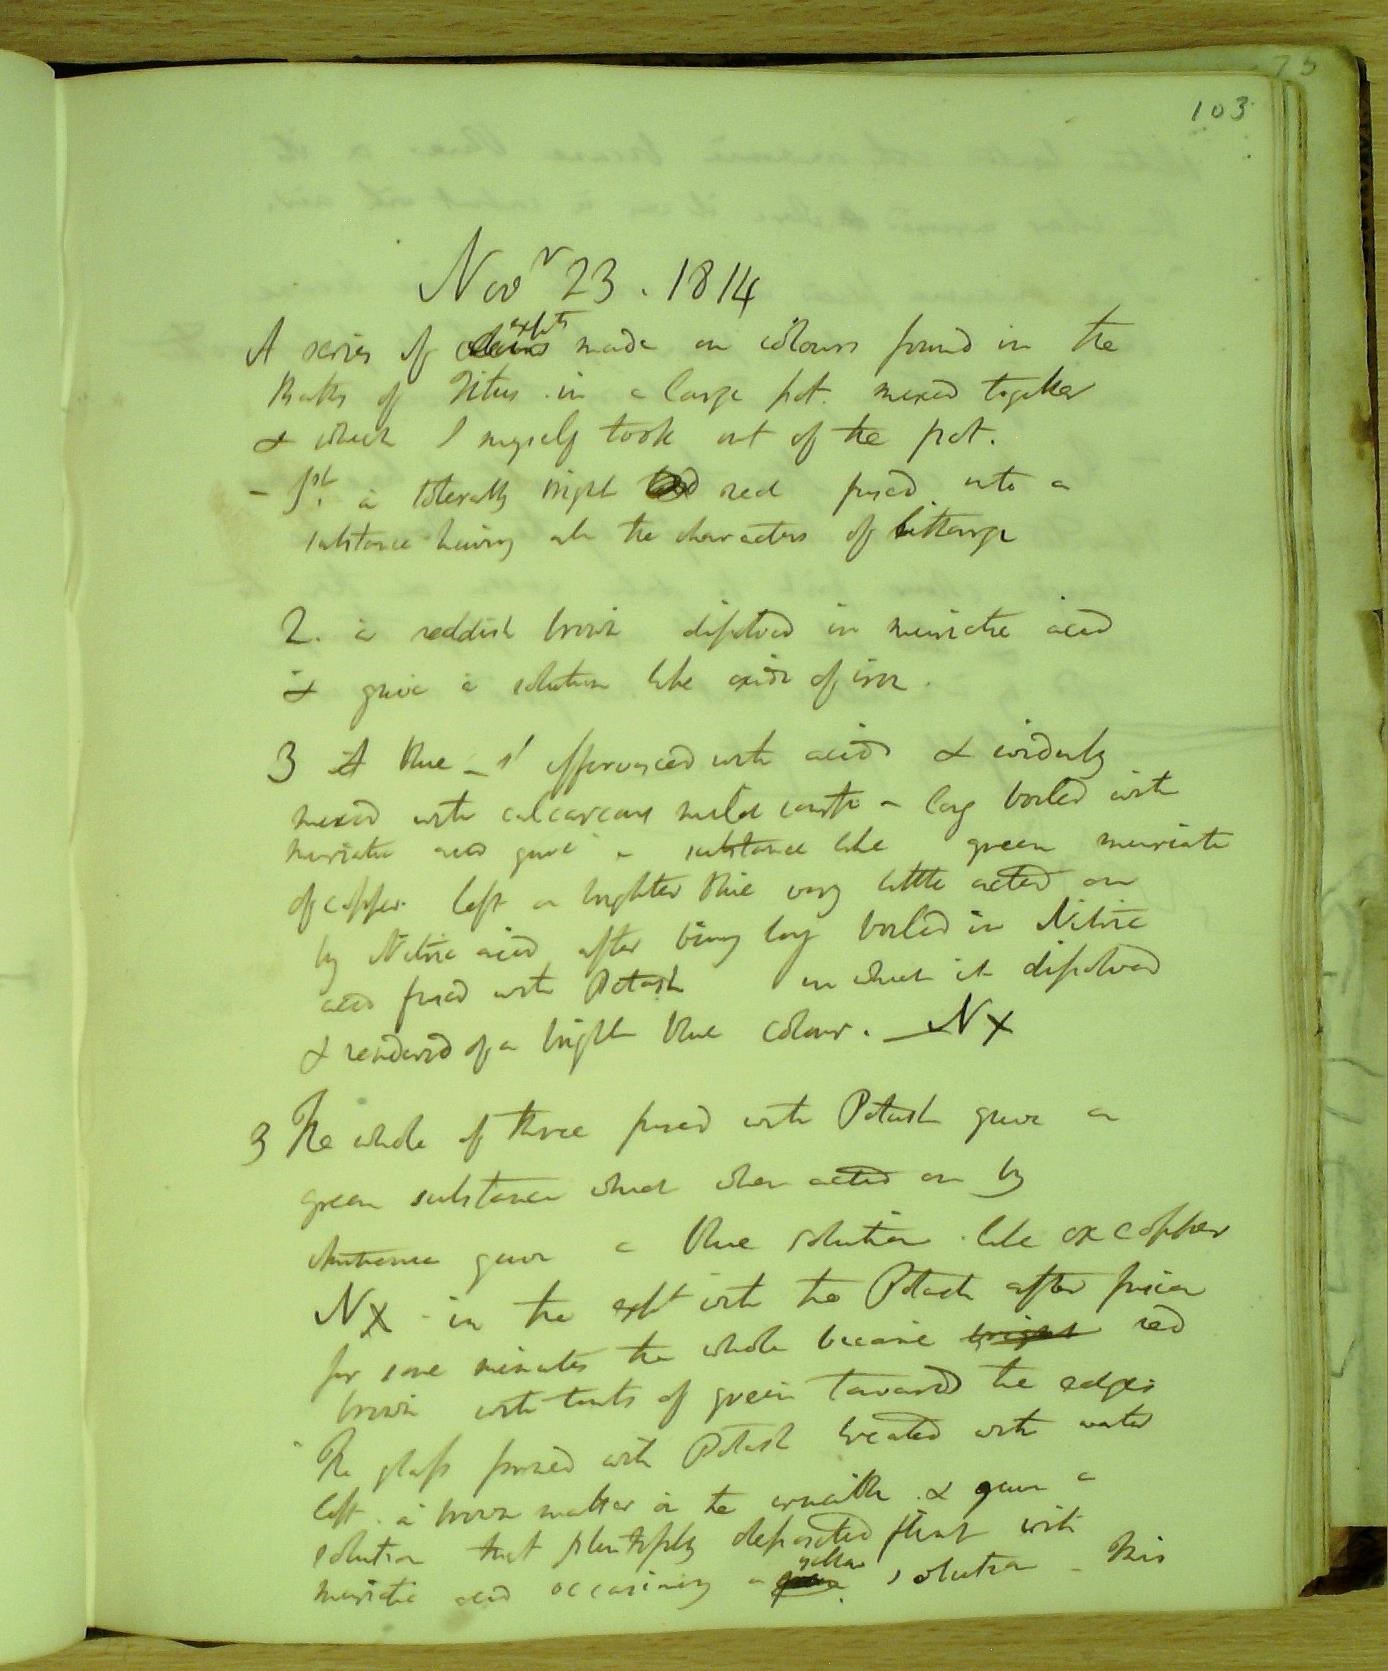 75
103
Novr 23. 1814
A series of expts made on colours found in the
Baths of Titus in a large pot. mixed together
& which I myself took out of the pot.
- 1st. a tolerably bright red fused into a
substance having all the characters of litharge
2. a reddish brown dissolved in muriatic acid
& gave a solution like oxide of iron.
3 A blue _ 1st effervesced with acids & evidently
mixed with calcareous mild earth - long boiled with
muriatic acid gave a substance like green muriate
of copper. left a brighter blue very little acted on
by Nitric acid after being long boiled in Nitric
acid fused with Potash in which it dissolved
& rendered of a bright blue colour. _ NX
3 The whole of three fused with Potash gave a
green substance which when acted on by
gave a blue solution like ox copper
NX - in the expt with the Potash after fusion
for some minutes the whole became bright red
brown with tints of green towards the edges
The glass formed with Potash treated with water
left a brown matter in the crucible & gave a
solution that plentifully deposited flint with
muriatic acid occasioning a yellow solution - This